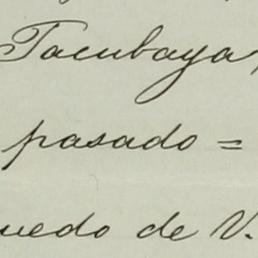 Tacubaya,
pasado =
uedo de V.